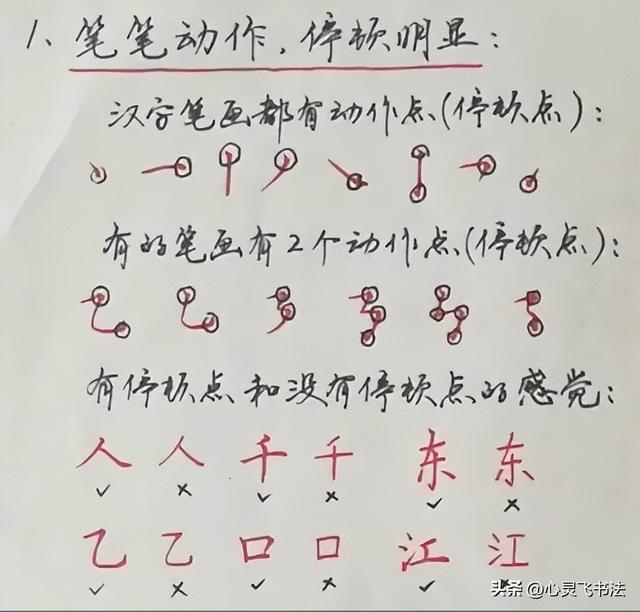 1、笔笔动作，停顿明显：
汉字笔画都有动作点（停顿点）：
有的笔画有2个动作点（停顿点）：
有停顿点和没有停顿点的感觉：
人 人 千 千 东 东
✓ × ✓ × ✓ ×
乙 乙 口 口 江 江
✓ × ✓ × ✓
头条 @心灵飞书法